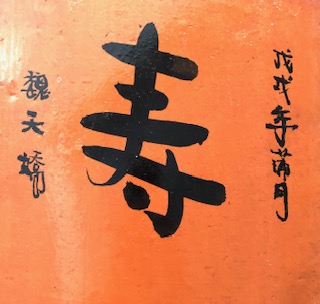 戊戌年蒲月
寿
魏天